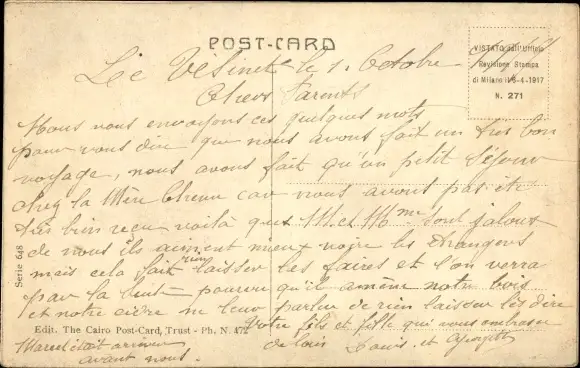 POST-CARD
VISTATO dall'Ufficio
Revisione Stampa
di Milano il 8-4-1917
N. 271
Le Vésinet le 1. Octobre
Chers Parents
Nous vous envoyons ces quelques mots
pour vous dire que nous avons fait un très bon
voyage, nous avons fait qu'un petit séjour
chez la Mère car nous avons pas été
très bien reçu voilà que M. et Mme sont jaloux
de nous ils aiment mieux voire les étrangers
mais cela fait rien laisser les faires et l'on verra
par la suite pourvu qu'il amène notre bois
et notre cidre ne leur parler de rien laisser les dire
Votre fils et fille qui vous embrasse
de loin Louis et
Marcel était arriver
avant nous.
Serie 648
Edit. The Cairo Post-Card, Trust - Ph. N. 472